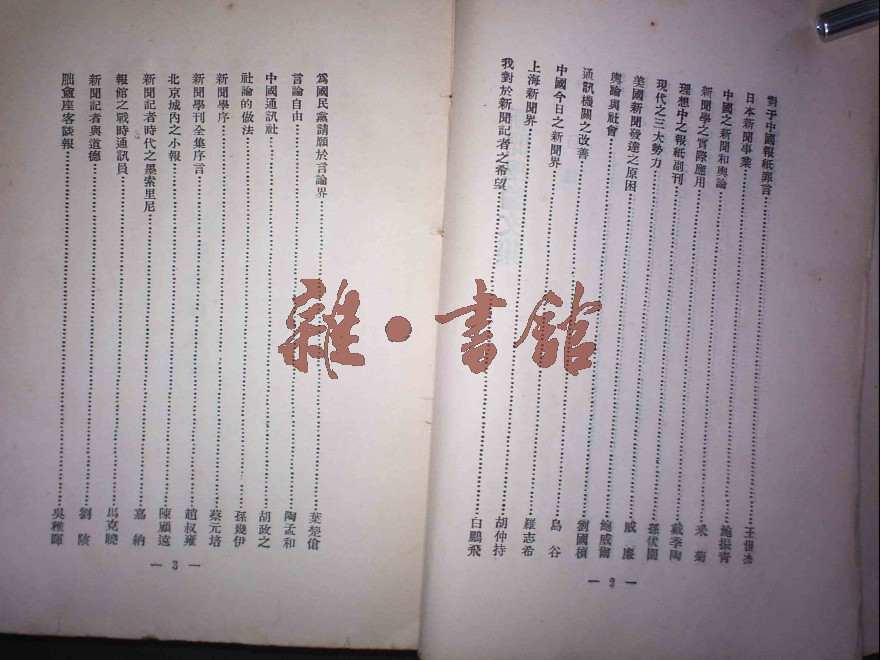 對于中國報紙罪言……王世杰
日本新聞事業……鮑振青
中國之新聞和輿論……采 菊
新聞學之實際應用……戴季陶
理想中之報紙副刊……孫伏園
現代之三大勢力……威 廉
美國新聞發達之原因……鮑威爾
輿論與社會……劉國楨
通訊機關之改善……島 谷
中國今日之新聞界……羅志希
上海新聞界……胡仲持
我對於新聞記者之希望……白鵬飛
— 2 —
為國民黨請願於言論界……葉楚傖
言論自由……陶孟和
中國通訊社……胡政之
社論的做法……孫幾伊
新聞學序……蔡元培
新聞學刊全集序言……趙叔雍
北京城內之小報……陳顧遠
新聞記者時代之墨索里尼……嘉 納
報館之戰時通訊員……馬克曉
新聞記者與道德……劉 陔
朏盦座客談報……吳稚暉
— 3 —
雜·書館